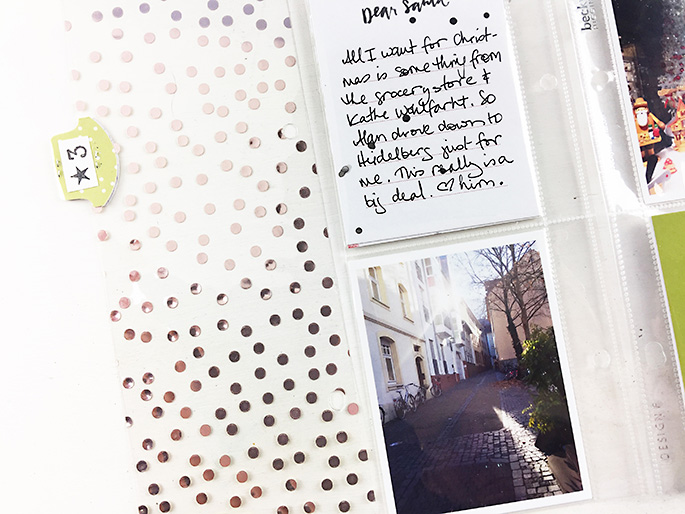 Dear Santa
All I want for Christ-
mas is something from
the grocery store &
Kathe Wohlfarht. So
Alan drove down to
Heidelberg just for
me. This really is a
big deal. ♡ him.
★3
beck
DESIGN